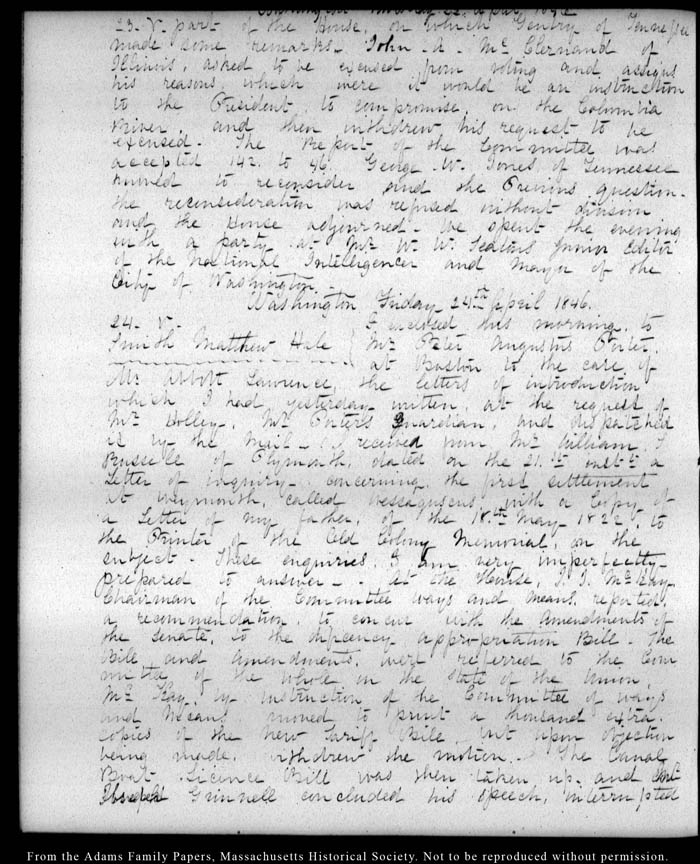 23. V. part of the House, on which Gentry of Tennessee
made some remarks. John A. McClernand of
Illinois, asked to be excused from voting and assigns
his reasons which were it would be an instruction
to the President to compromise on the Columbia
River, and then withdrew his request to be
excused. The Report of the Committee was
accepted 142. to 46. George W. Jones of Tennessee
moved to reconsider and the Previous question.
the reconsideration was refused without division
and the House adjourned. We spent the evening
with a party at Mr W. W. Seatons junior Editor
of the National Intelligencer and Mayor of the
City of Washington.
Washington Friday 24th April 1846.
24. V. I enclosed this morning, to
Smith Matthew Hale Mr Peter Augustus Porter,
at Boston to the care of
Mr Abbott Lawrence, the letters of introduction
which I had yesterday written, at the request of
Mr Holley, Mr Porter's Guardian, and dispatched
it by the Mail. I received from Mr William S
Russell of Plymouth, dated on the 21.st inst.t a
Letter of inquiry concerning the first settlement
at Weymouth, called Wessaguscus, with a Copy of
a Letter of my father, of the 18.th May 1822, to
the Printer of the Old Colony Memorial, on the
subject. These enquiries, I am very imperfectly
prepared to answer. At the House, J. J. McKay
Chairman of the Committee ways and means, reported,
a recommendation, to concur with the Amendments of
the Senate, to the deficiency appropriation Bill. The
Bill and amendments, were referred to the Com
mittee of the whole on the state of the Union.
Mc Kay, by instruction of the Committee of ways
and Means moved to print a thousand extra
copies of the new Tariff Bill but upon objection
being made, withdrew the motion. The Canal
Boat Licence Bill was then taken up, and
Grinnell concluded his speech, interrupted
From the Adams Family Papers, Massachusetts Historical Society. Not to be reproduced without permission.